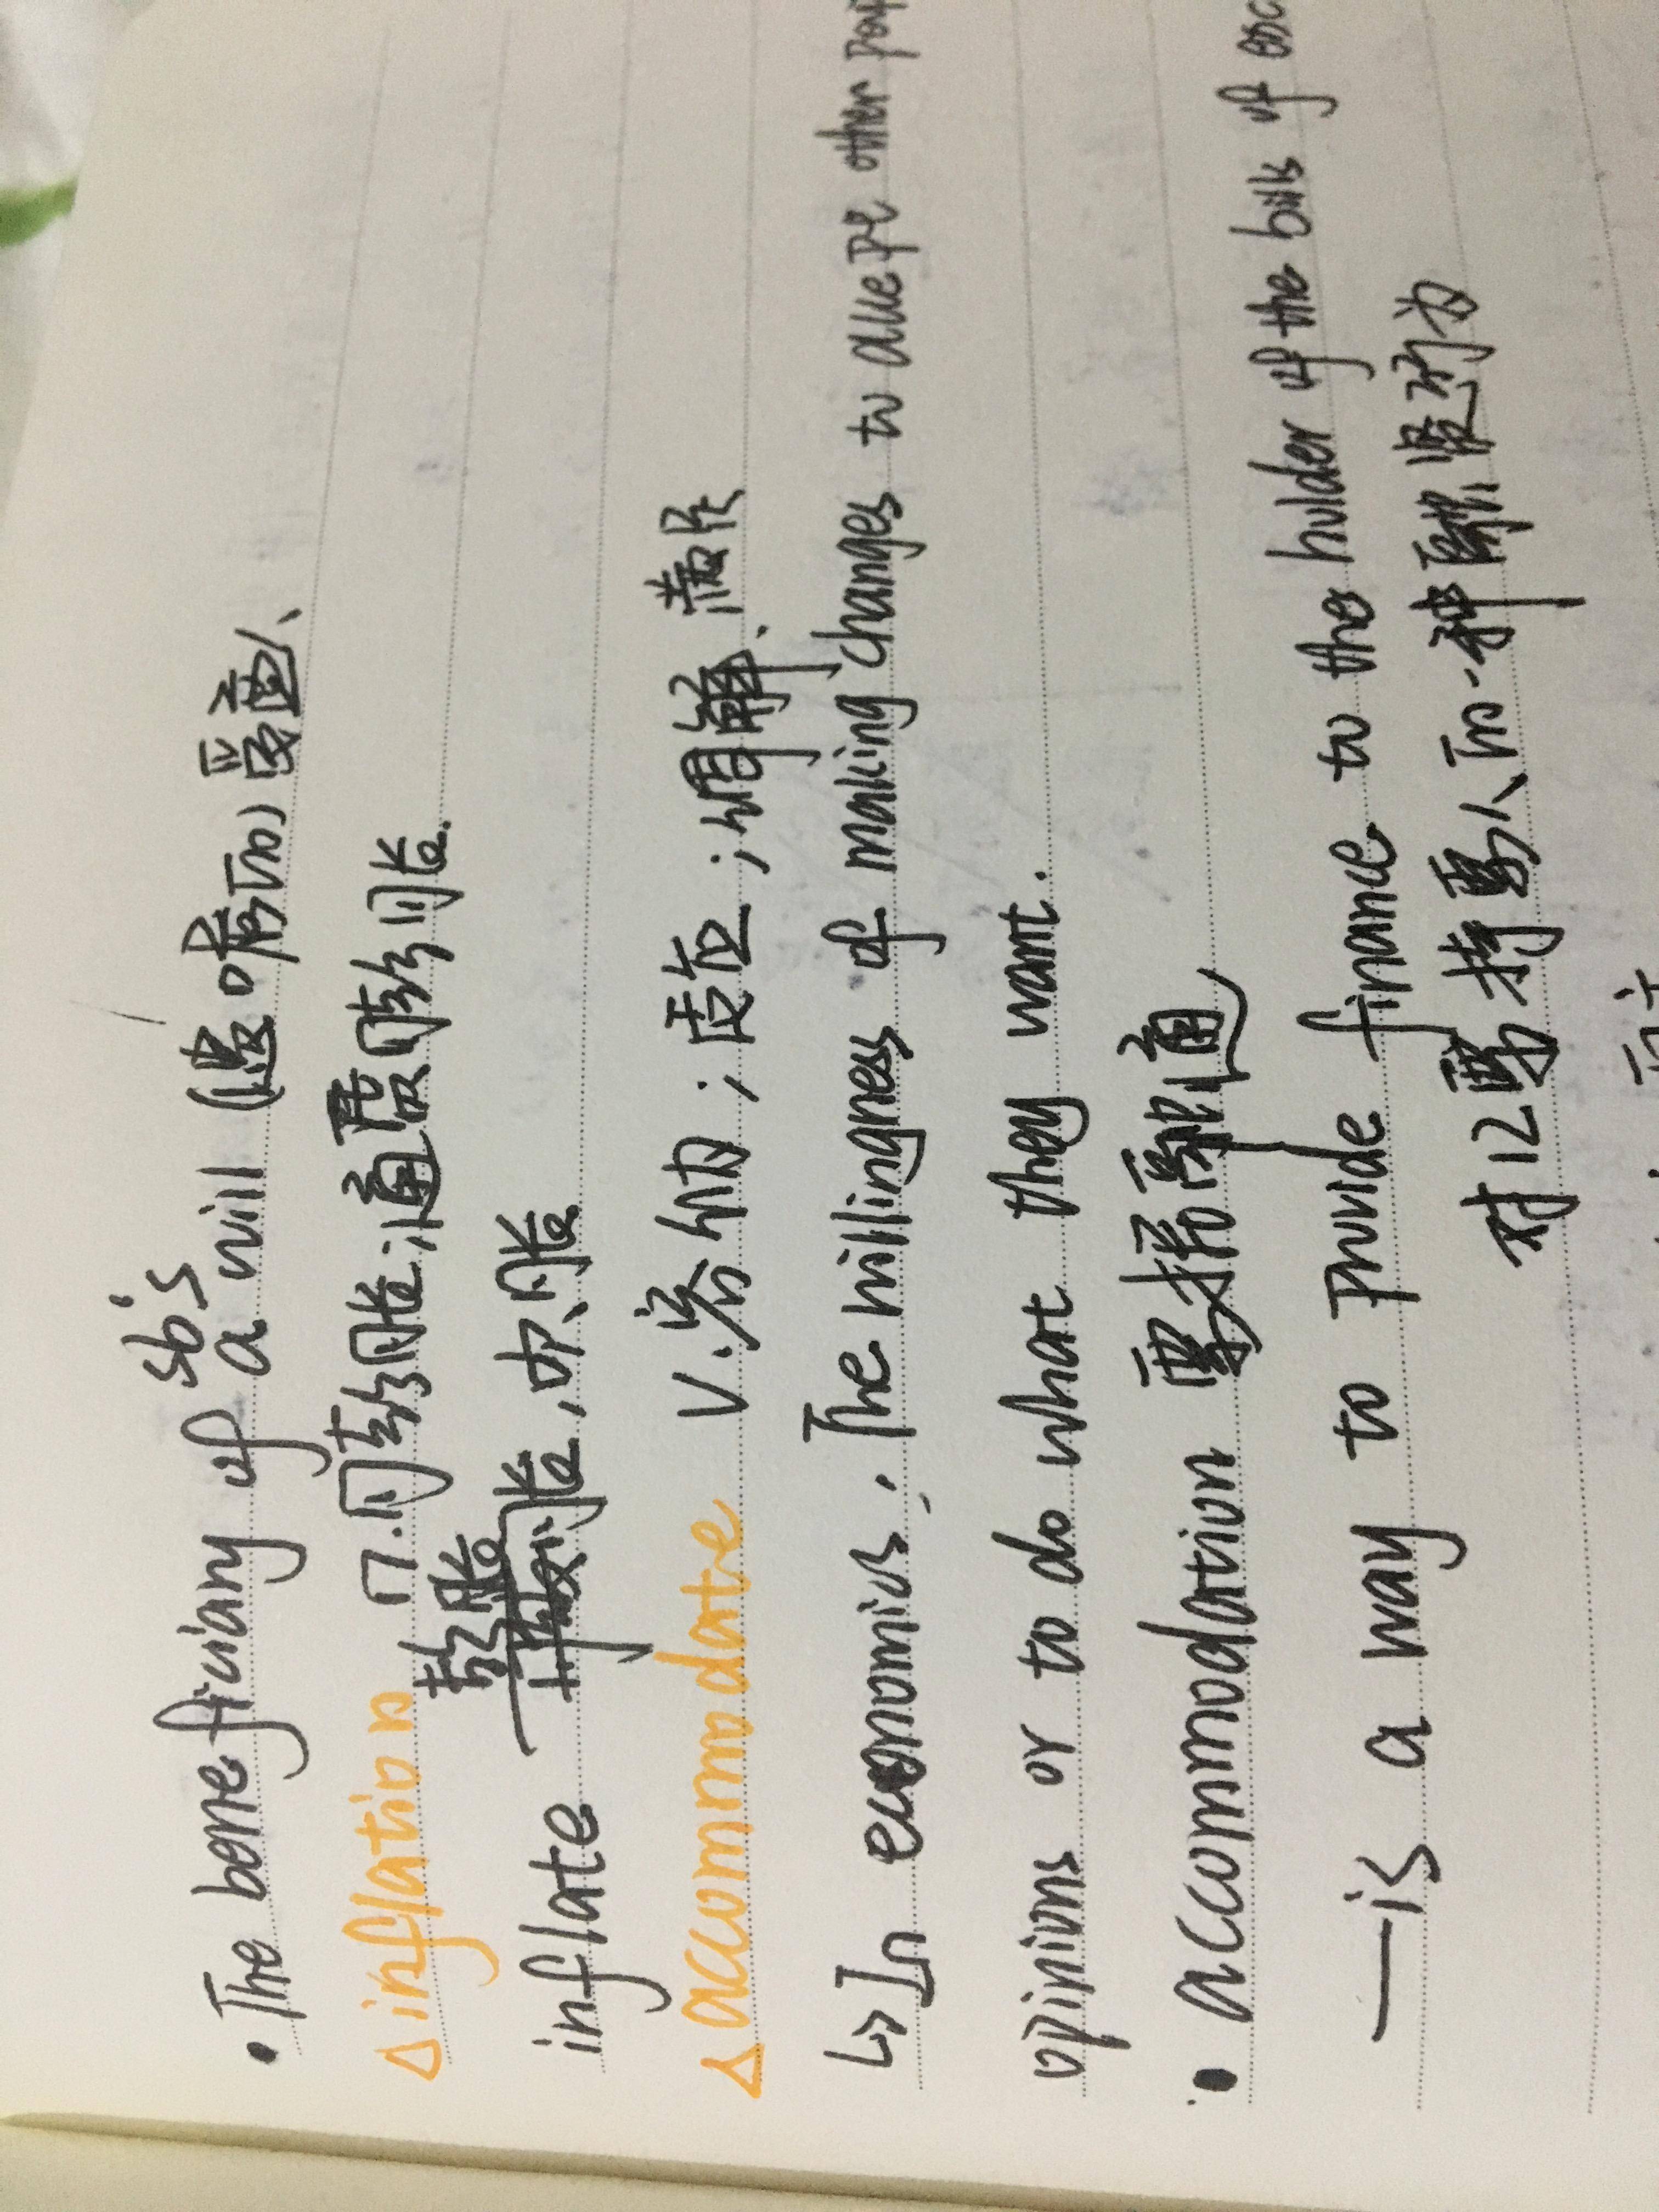 • The beneficiary of a sb's will (遗嘱的)受益人
△ inflation n.膨胀;通货膨胀
inflate 膨胀,吹胀
△ accommodate v.容纳;适应;调解.满足
↳ In economics. The willingness of making changes to accept other
opinions or to do what they want.
• accommodation 票据融通
—is a way to provide finance to the holder of the bills of
对汇票持票人的一种融资行为